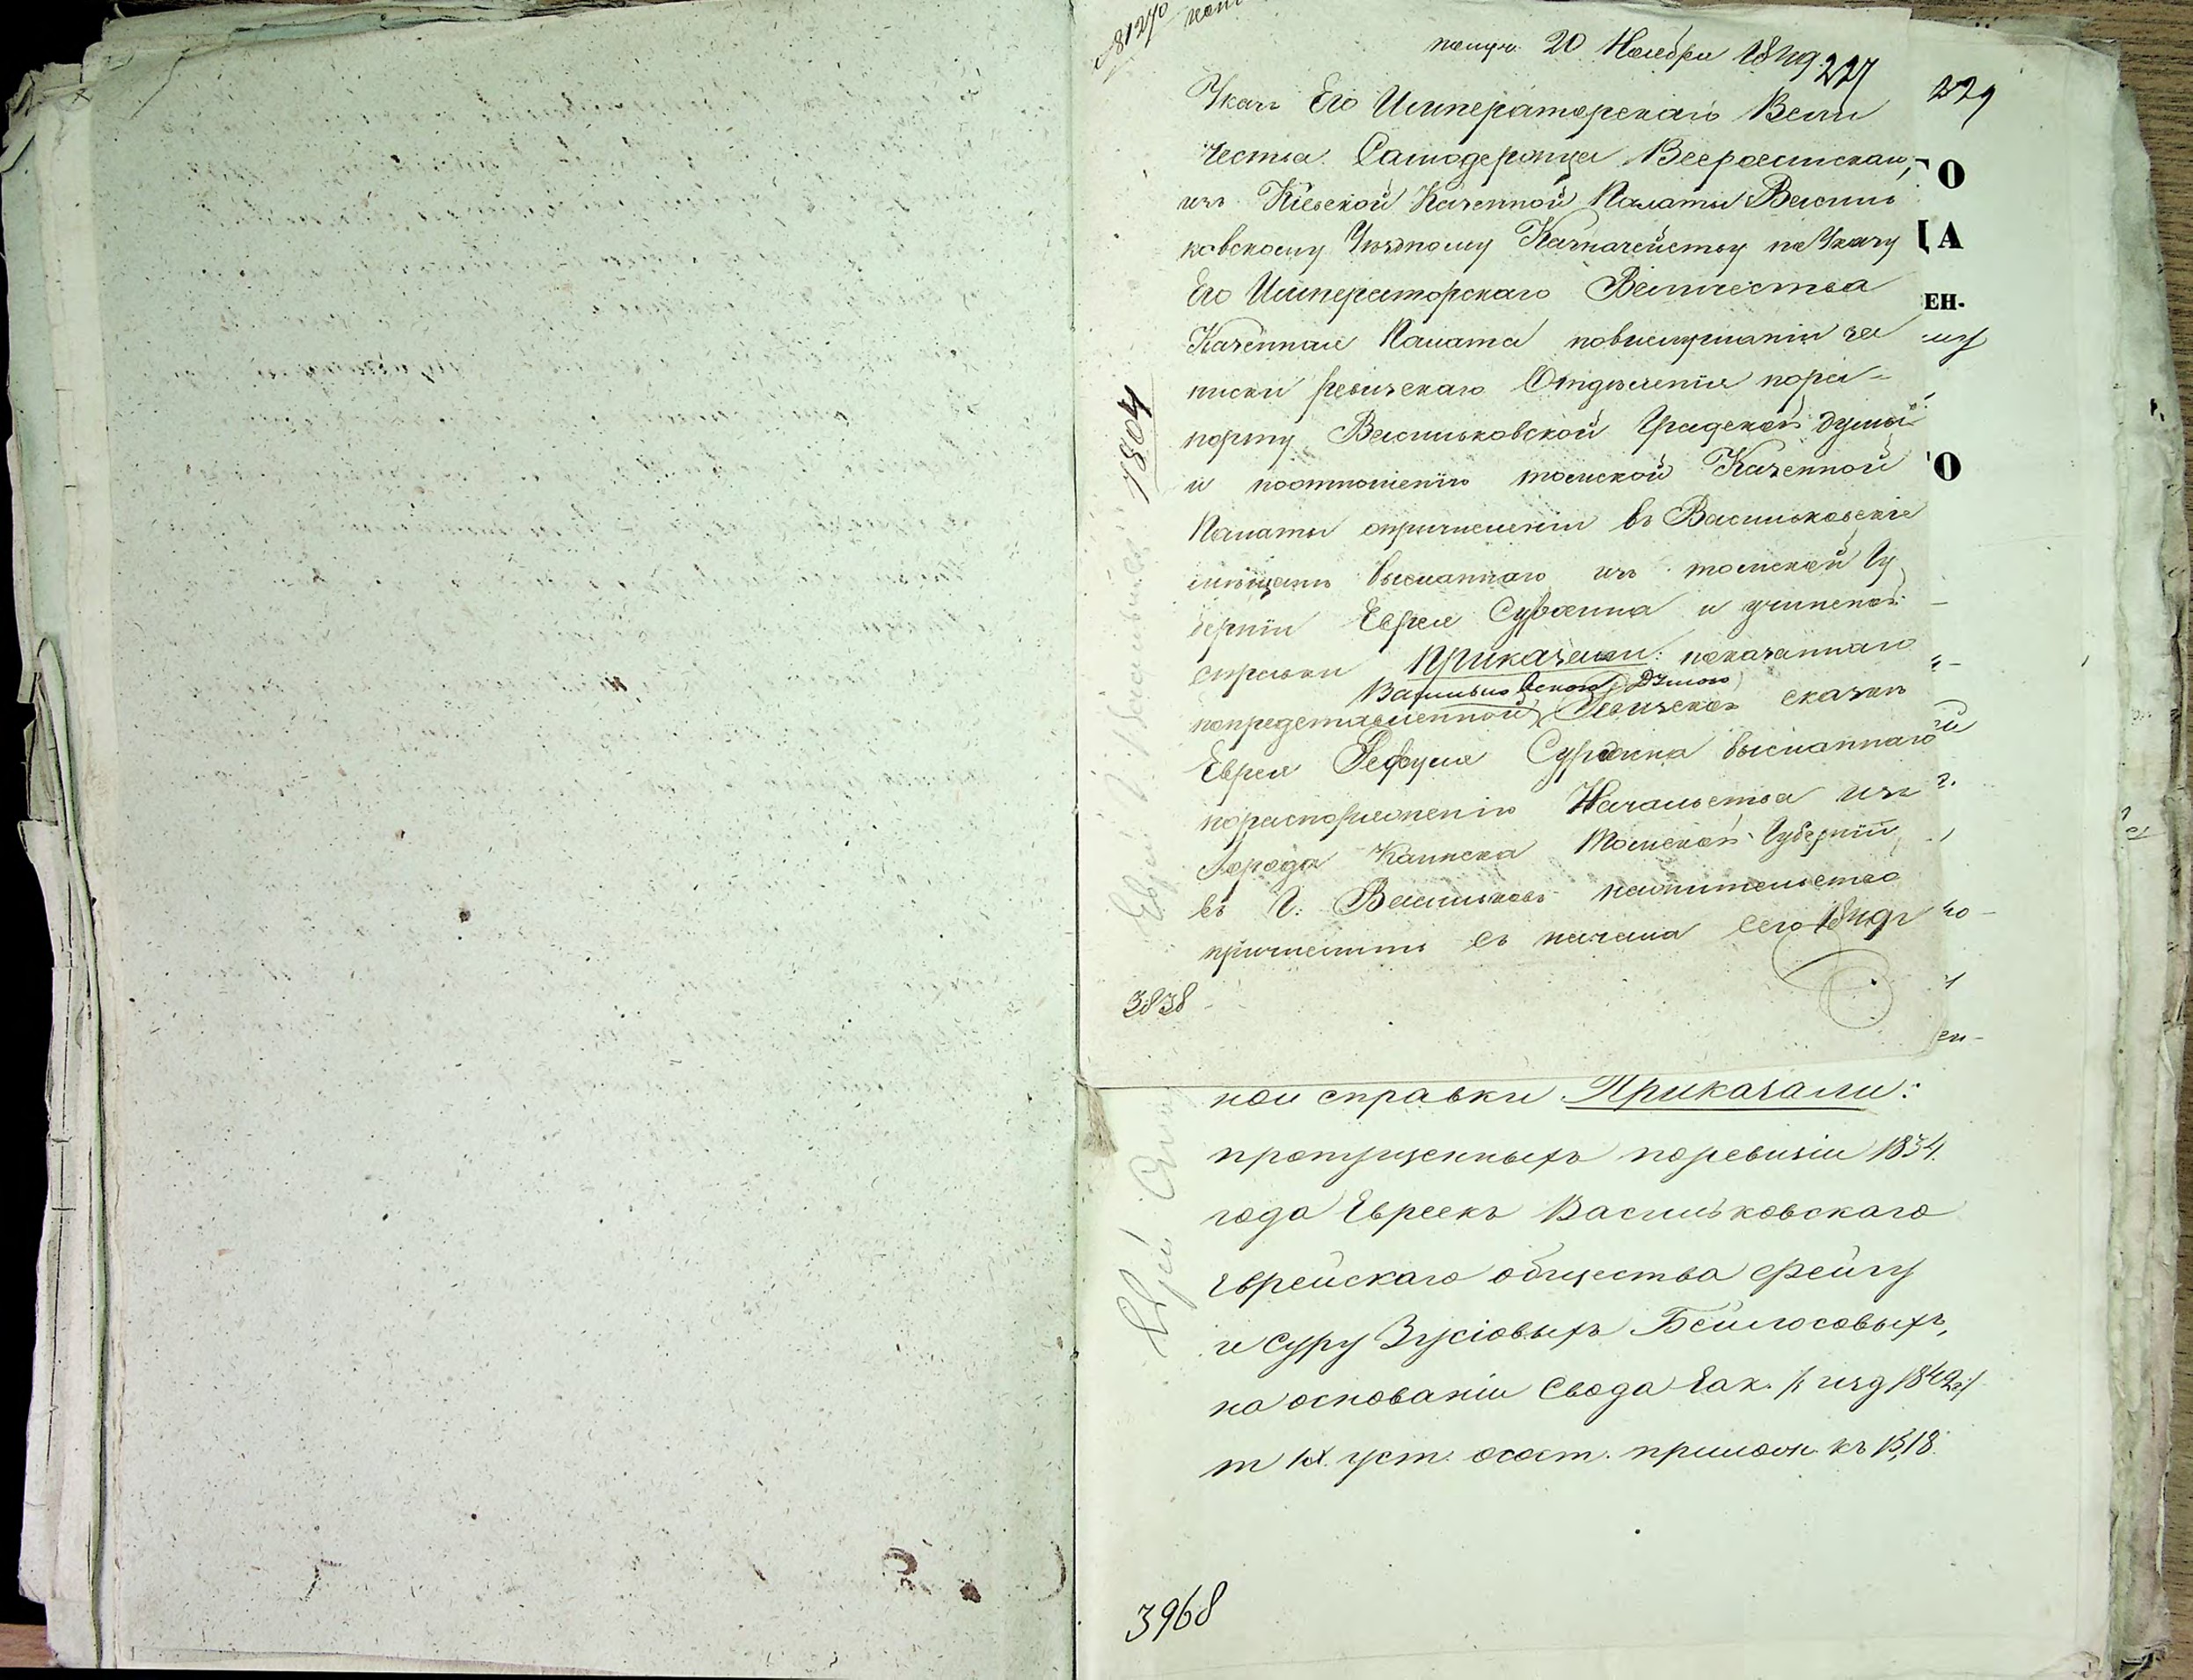 получ. 20 Ноября 1849
227
229
Указъ Его Императорскаго Вели
чества Самодержца Всероссійскаго,
изъ Кіевской Казенной Палаты Василь
ковскому Уѣздному Казначейству по Указу
Его Императорскаго Величества
Казенная Палата повыслушаніи за
писки Ревизскаго Отдѣленія пора-
порту Васильковской Градской думы
и поотношенію томской Казенной
Палаты опричисленіи въ Васильковскіе
мѣщане высланнаго изъ томской Гу
берніи Еврея Сурдина и учиненной
справки Приказали: показаннаго
Васильковскою Думою
попредставленной Ревизской сказкѣ
Еврея Рефуля Сурдина высланнаго
пораспоряженію Начальства изъ
Города Каинска Томской Губерніи,
въ Г. Васильковъ нажительство
причислить съ начала сего 1849г
7804
3838
О
А
ЕН-
О
ен-
ной справки Приказали:
пропущенныхъ поревизіи 1834.
года Евреекъ Васильковскаго
Еврейскаго общества Фейгу
и Суру Зусіовыхъ Бейлосовыхъ,
на основаніи Свода Зак. /: изд 1842г:/
т IX. уст. осост. прилож. къ
3968